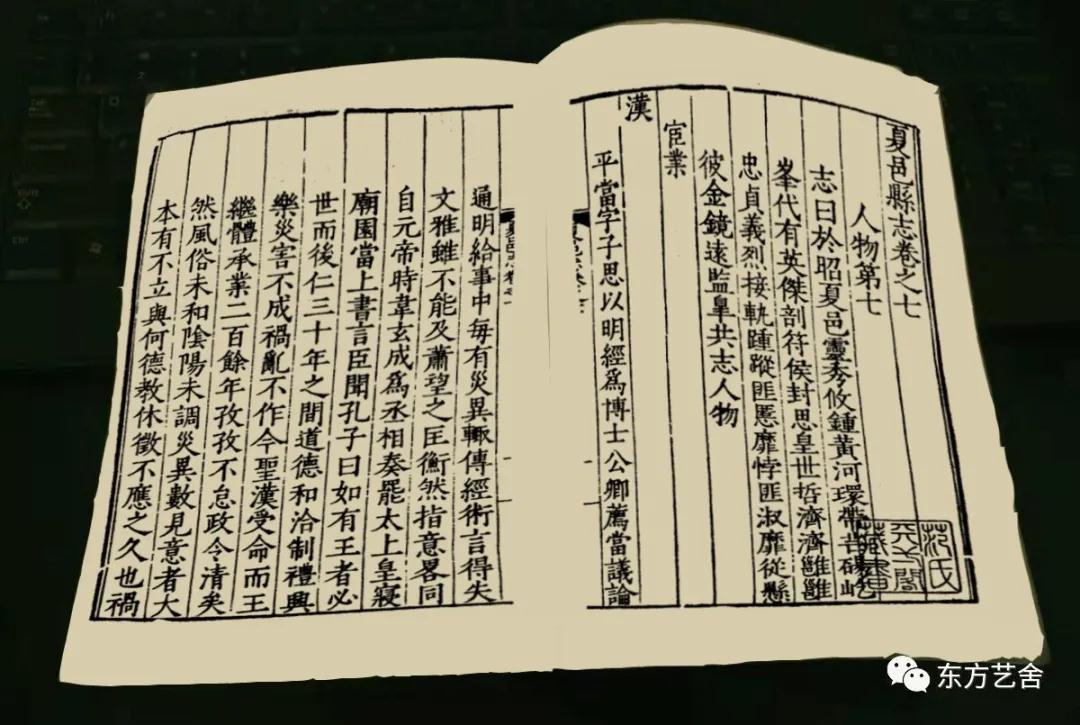 夏邑縣志卷之七
人物第七
志曰於昭夏邑靈秀攸鍾黃河環帶芒碭屹
峯代有英傑剖符侯封思皇世哲濟濟雝雝
忠貞義烈接軌踵蹤匪慝靡悖匪淑靡從懸
彼金鏡遠監皐共志人物
宦業
漢
平當字子思以明經爲博士公卿薦當議論
通明給事中每有災異輙傳經術言得失
文雅雖不能及蕭望之匡衡然指意畧同
自元帝時韋玄成爲丞相奏罷太上皇寢
廟園當上書言臣聞孔子曰如有王者必
世而後仁三十年之間道德和洽制禮興
樂災害不成禍亂不作今聖漢受命而王
繼體承業二百餘年孜孜不怠政令清矣
然風俗未和陰陽未調災異數見意者大
本有不立與何德教休徵不應之久也禍
范氏
天一閣
藏書
东方艺舍